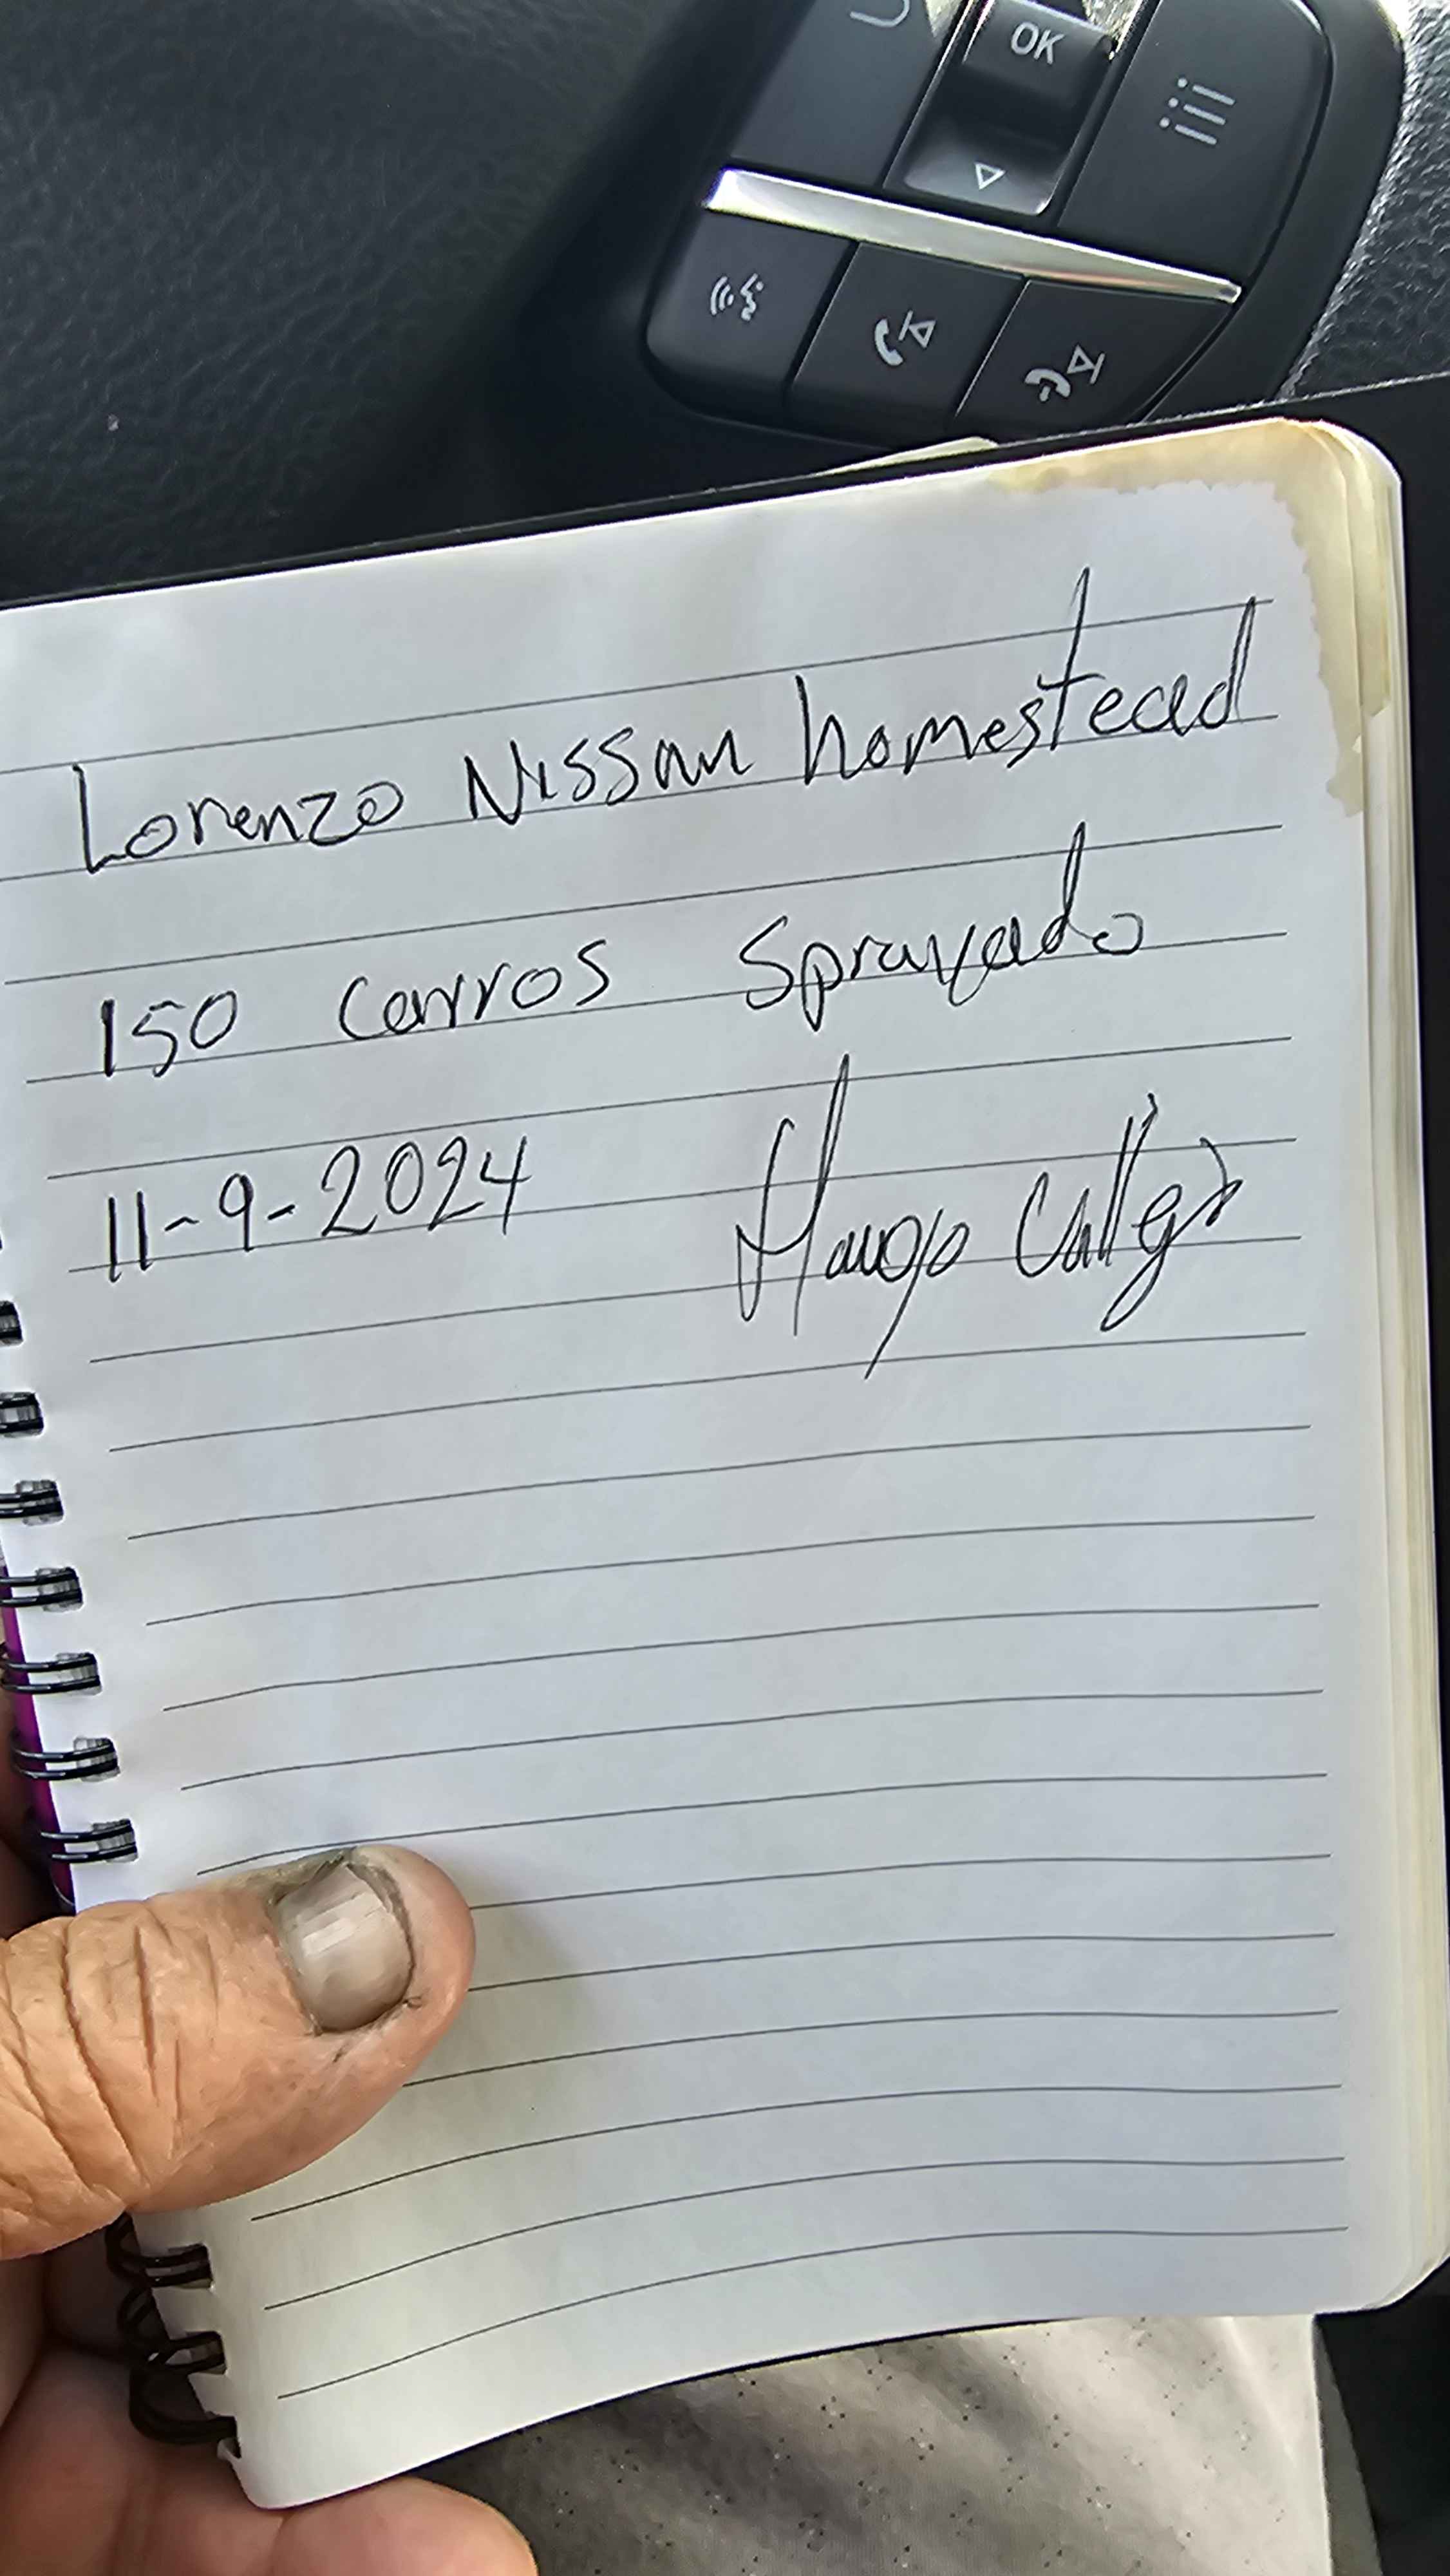 OK
Lorenzo Nissan homestead
150 Carros Sprayado
11-9-2024